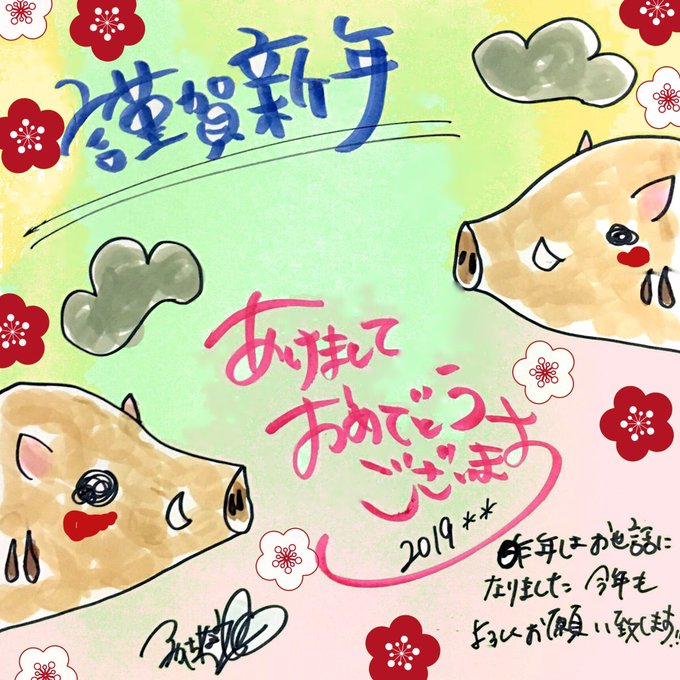 謹賀新年
あけまして
おめでとう
ございます
2019**
昨年はお世話に
なりました 今年も
よろしくお願い致します!!